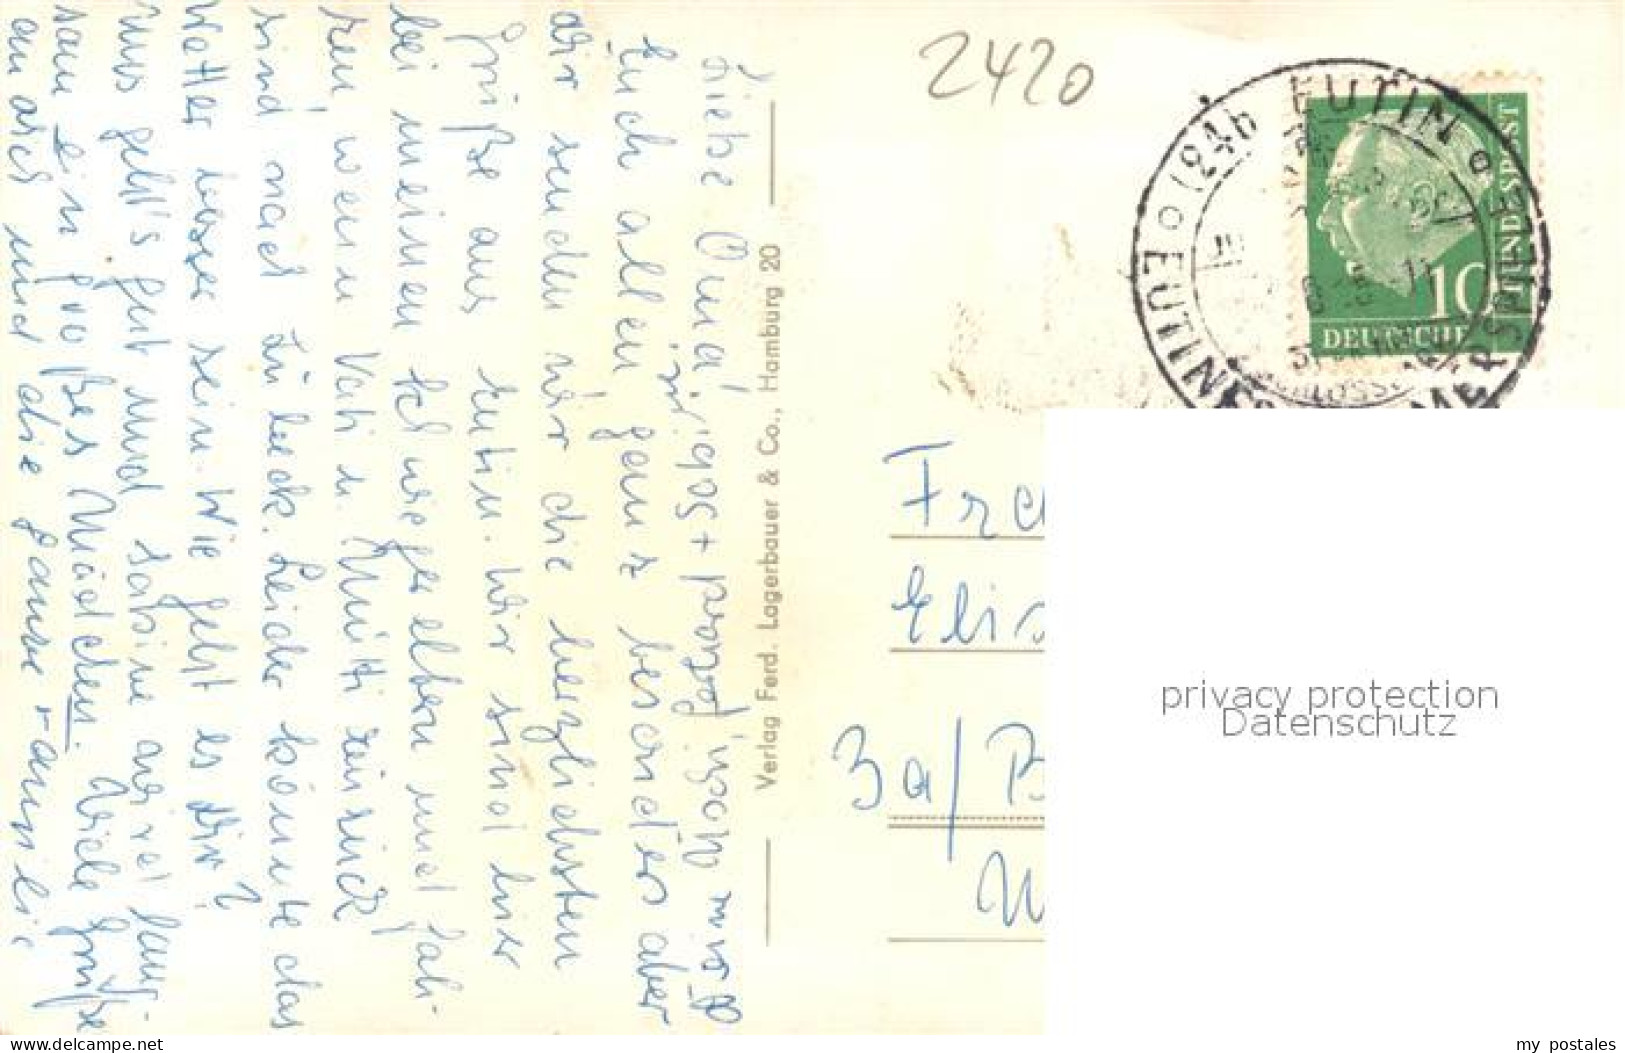 Liebe Oma!
Euch allen ganz besonders aber
dir senden wir die herzlichsten
Grüße aus Eutin. Wir sind hier
bei meinen Schwiegereltern und fah-
ren, wenn Vati u. Mutti zurück
sind nach Lübeck. Leider könnte das
Wetter besser sein. Wie geht es dir?
Uns geht's gut und Sabine wird lang-
sam ein großes Mädchen. Viele Grüße
an und die ganze Familie
+ Sabine
Verlag Ferd. Lagerbauer & Co., Hamburg 20
2420
(24b) EUTIN
EUTINER SOMMERSPIELE
SCHLOSS
DEUTSCHE
BUNDESPOST
10
Elis
3a/
privacy protection
Datenschutz
www.ansichtskarten-lexikon.de
my_postales